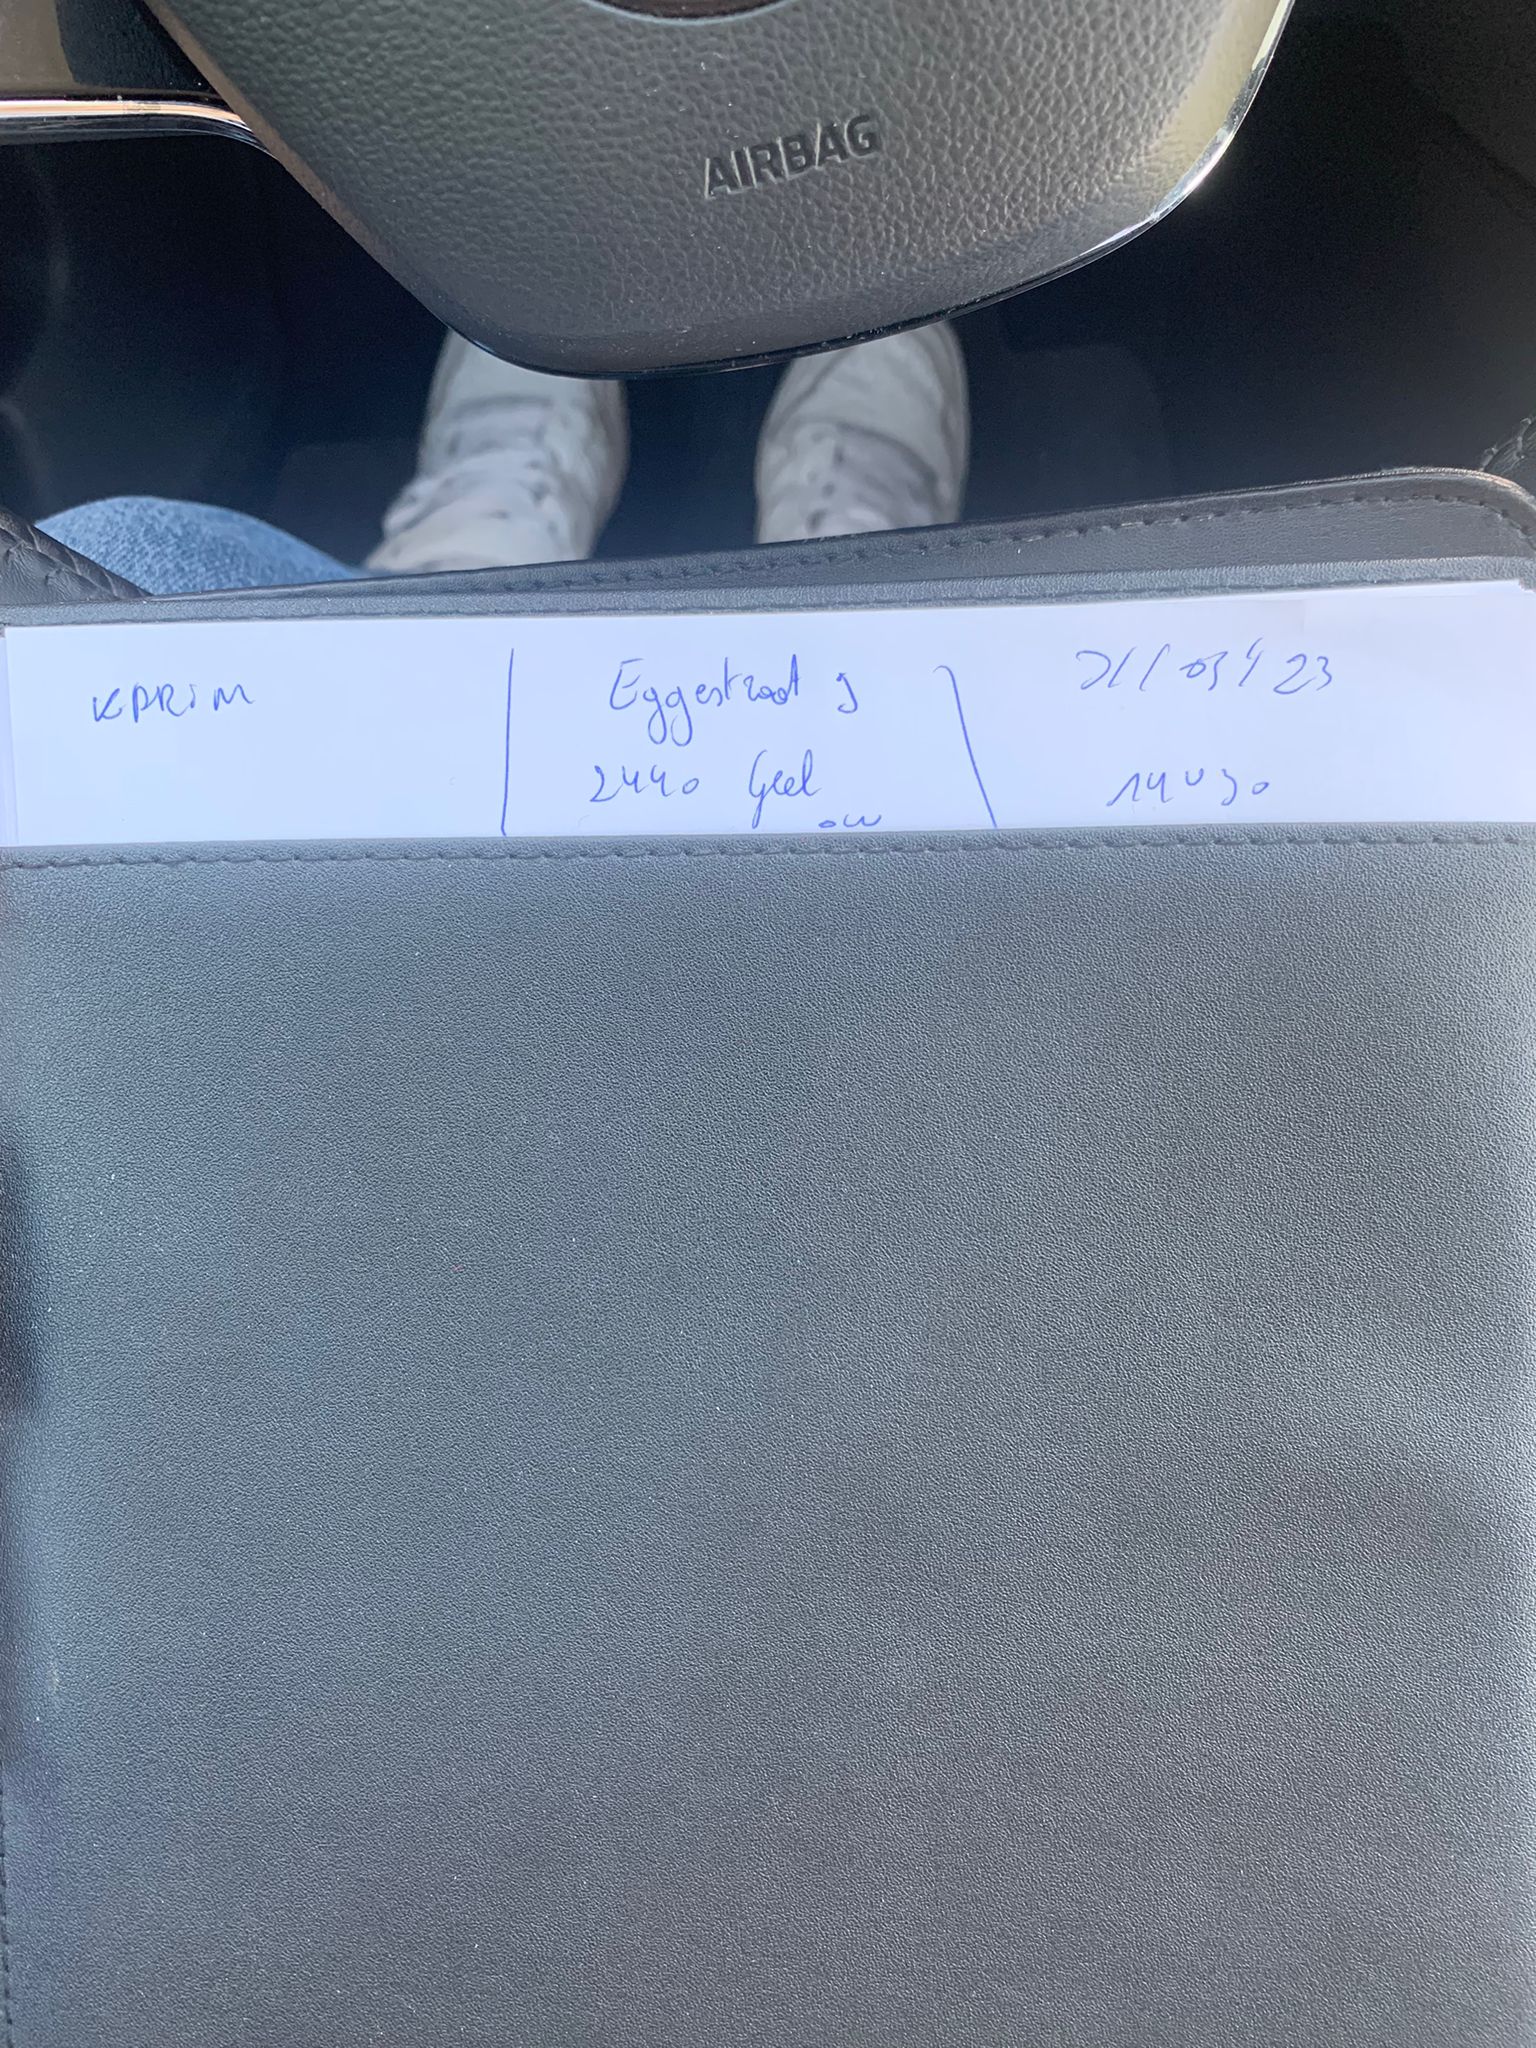 AIRBAG
KARIM
Eggestraat 9
2440 Geel
ow
21/03/23
14u30